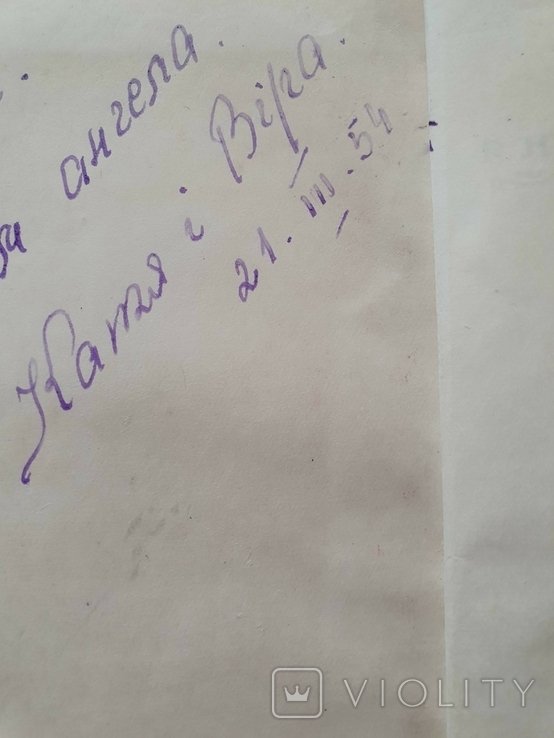 ангела.
Катя і Віра.
21. III. 54
VIOLITY